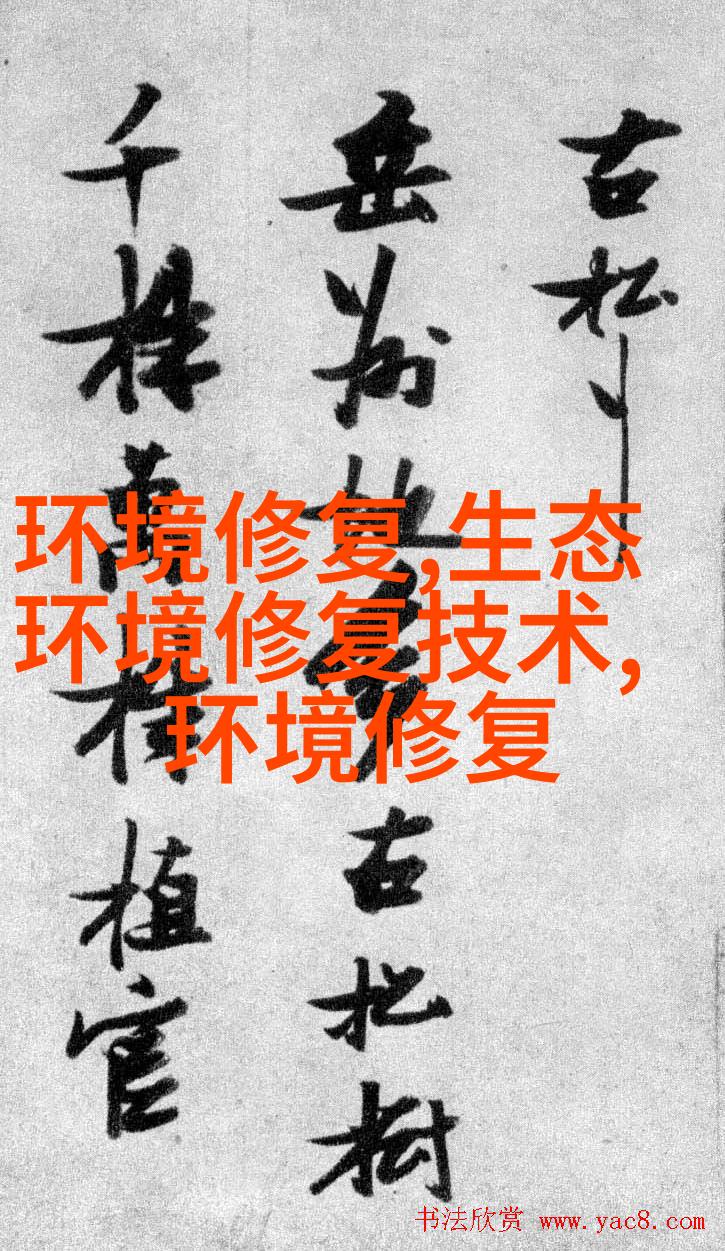 古松
岳州
古松樹
千株萬
植官
环境修复,生态
环境修复技术,
环境修复
书法欣赏 www.yac8.com